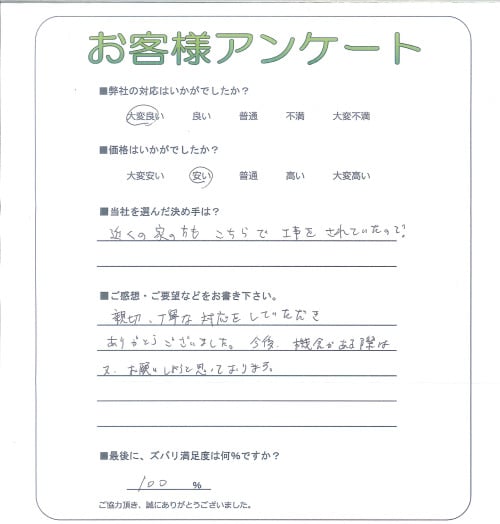 お客様アンケート
■弊社の対応はいかがでしたか？
大変良い 良い 普通 不満 大変不満
■価格はいかがでしたか？
大変安い 安い 普通 高い 大変高い
■当社を選んだ決め手は？
近くの家の方も こちらで 工事を されていたので
■ご感想・ご要望などをお書き下さい。
親切、丁寧な対応をしていただき
ありがとうございました。今後、機会がある際は
又、お願いしようと思っております。
■最後に、ズバリ満足度は何％ですか？
100 ％
ご協力頂き、誠にありがとうございました。